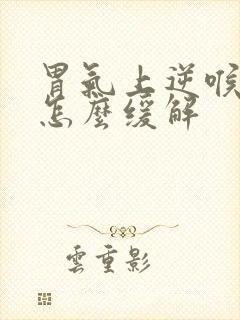 胃氣上逆喉
怎麼緩解
雲重影